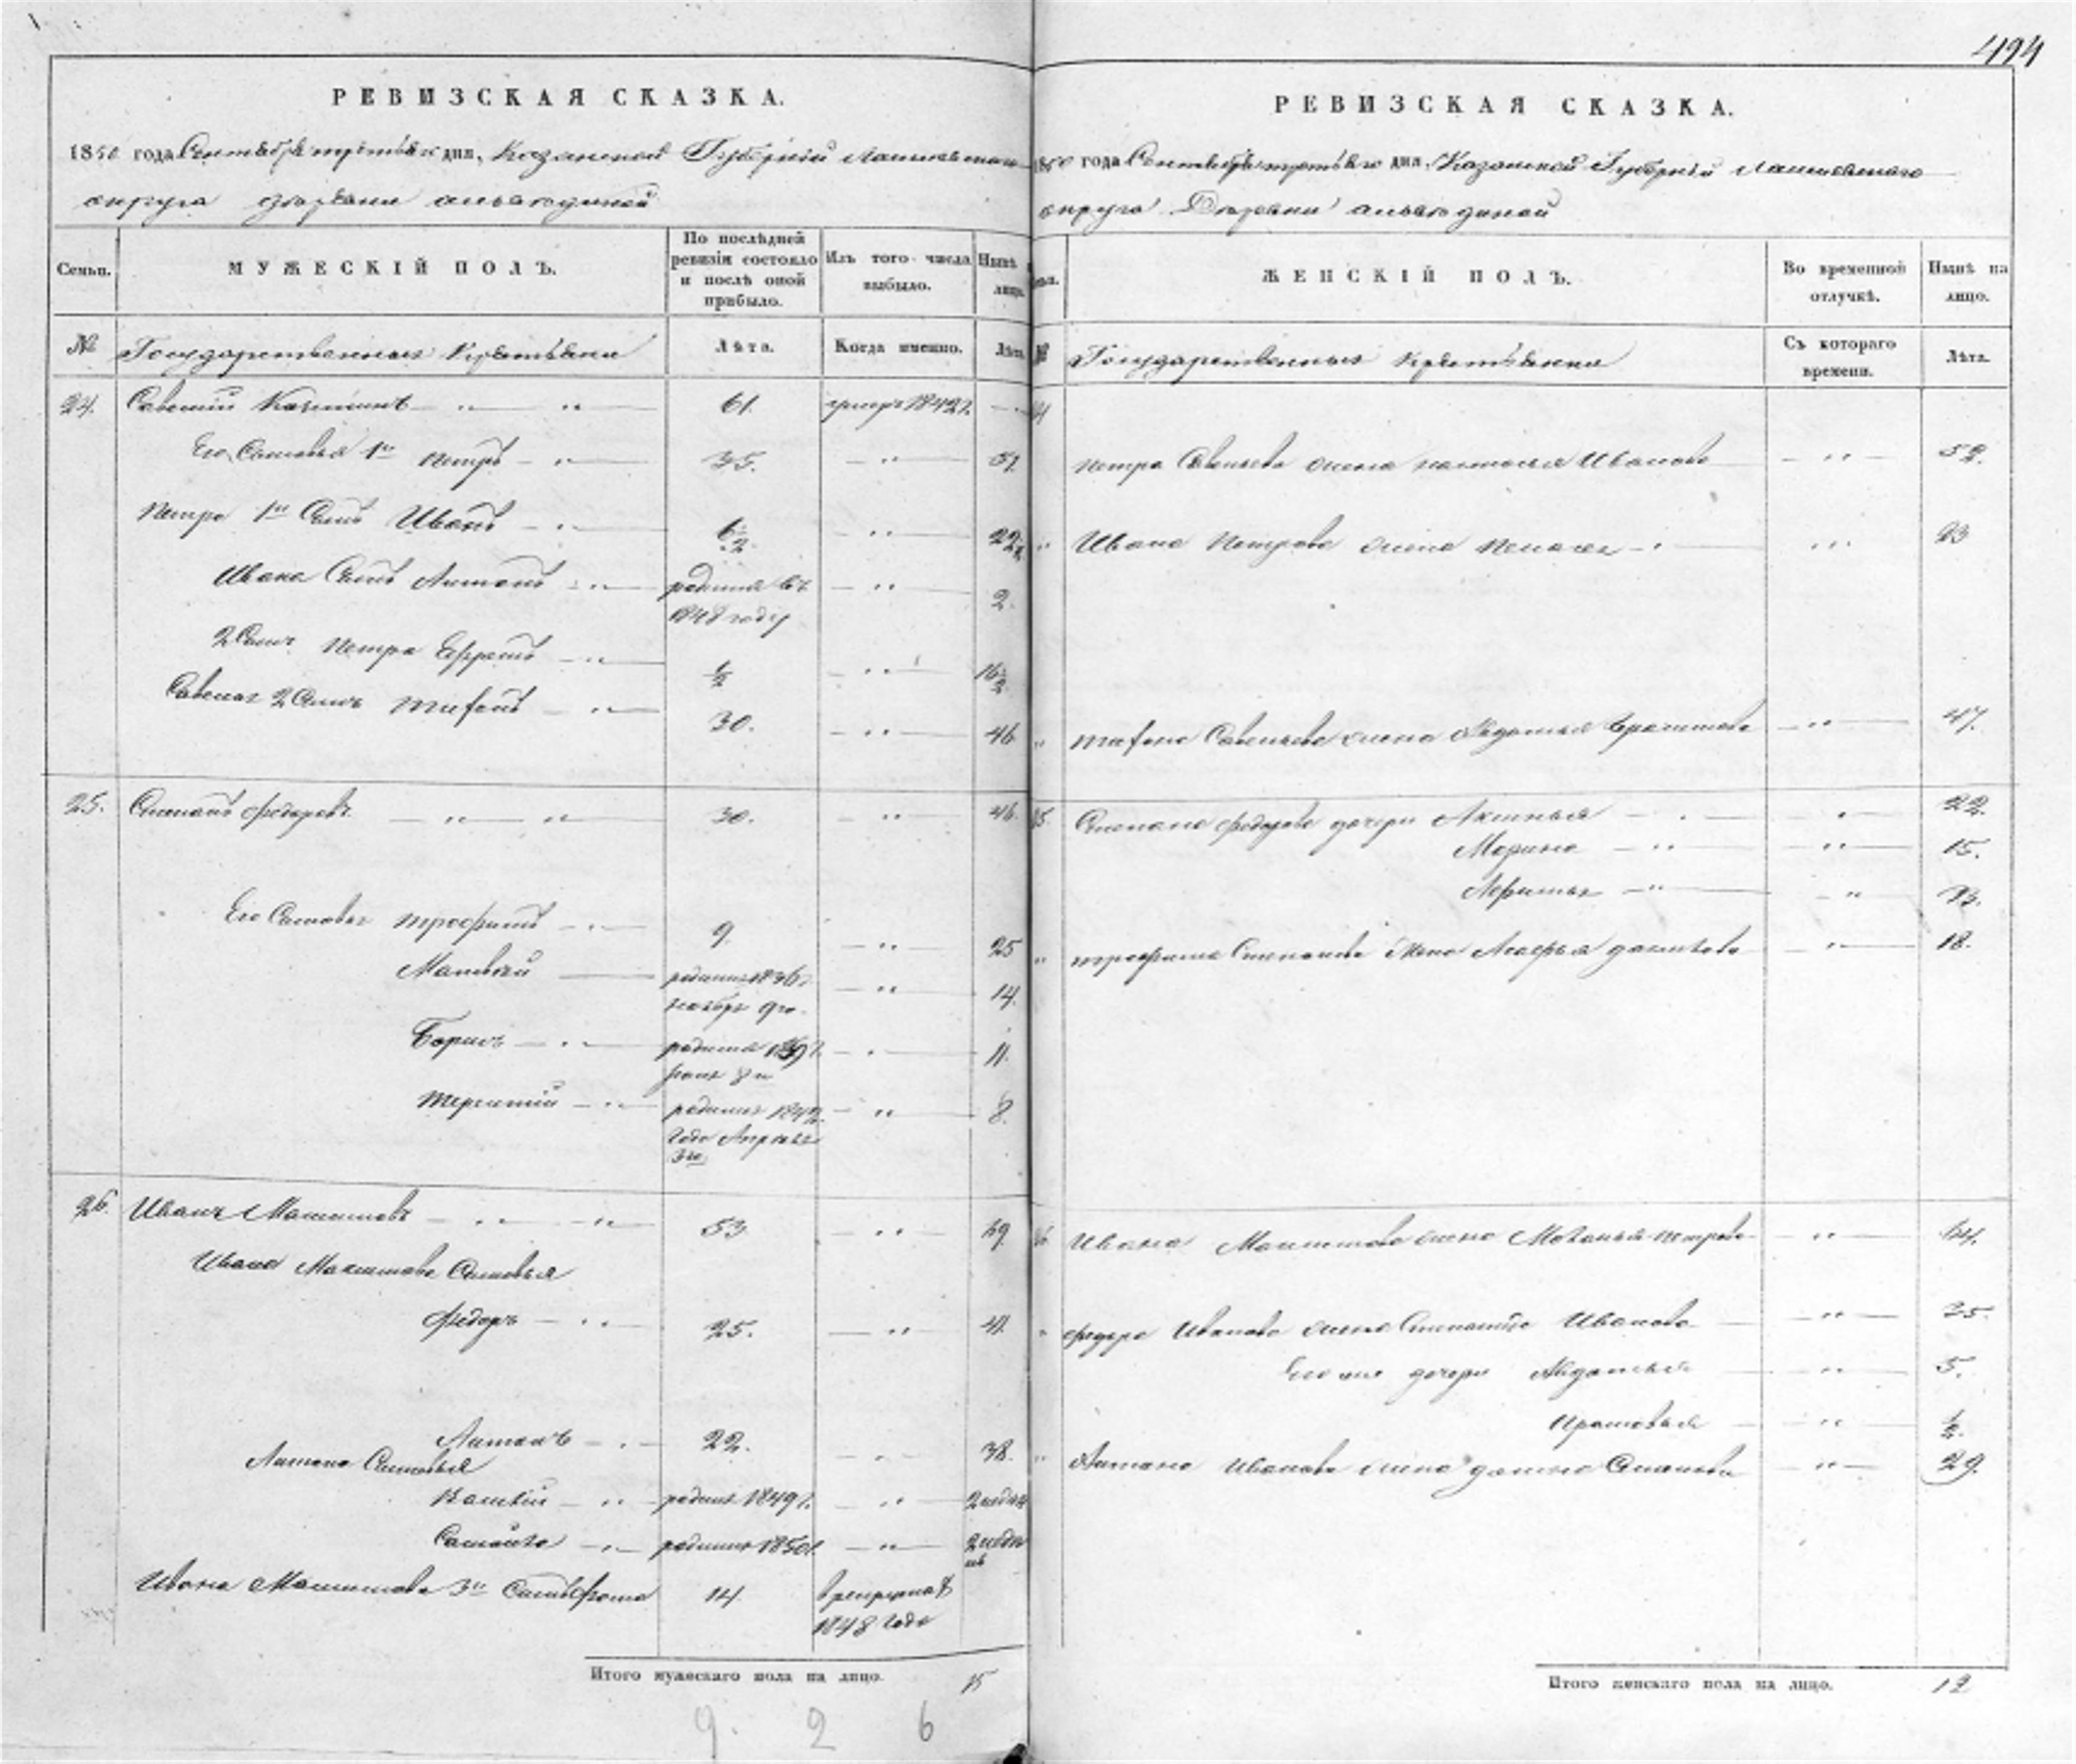 494
РЕВИЗСКАЯ СКАЗКА.
1850 года Сентября третьяго дня, Казанской Губерній Лаишевскаго
округа деревни
Семьи.
МУЖЕСКІЙ ПОЛЪ.
По послѣдней ревизіи состояло и послѣ оной прибыло.
Изъ того числа выбыло.
Нынѣ на лицо.
№
Государственныя Крестьяне
Лѣта.
Когда именно.
Лѣта.
24. Савелий 61. умеръ 1842 г.
Его Сыновья 1й Петръ 35. 51
Петра 1й Сынъ Иванъ 6 1/2 22 1/2
Ивана Сынъ Антонъ родился въ 2.
1848 году
2 Сынъ Петра Ефремъ 1/2 16 1/2
Савелья 2 Сынъ Тифонъ 30. 46
25. Степанъ Федоровъ 30. 46.
Его Сыновья Трофимъ 9 25
Матвей родился 1836 г. 14.
ноября 9го.
Борисъ родился 1839 г. 11.
Терентий родился 1842 8.
года Апреля
3го
26. Иванъ Максимовъ 53 69
Ивана Максимова Сыновья
Федоръ 25. 41.
Антонъ 22. 38.
Антона Сыновья
Василий родился 1849 г.
Самойло родился 1850 г.
Ивана Максимова 3й Сынъ Фома 14. в рекрутах
1848 года
Итого мужескаго пола на лицо. 15
9. 2 6
РЕВИЗСКАЯ СКАЗКА.
1850 года Сентября третьяго дня, Казанской Губерній Лаишевскаго
округа Деревни
ЖЕНСКІЙ ПОЛЪ.
Во временной отлучкѣ.
Нынѣ на лицо.
№
Государственныя Крестьяне
Съ котораго времени.
Лѣта.
24
Петра Савельева жена Иванова 52.
Ивана Петрова жена Пелагея 23
Тифона Савельева жена Авдотья 47.
25. Степана Федорова дочери Аксинья 22.
Марина 15.
13.
Трофима Степанова жена 18.
26. Ивана Максимова жена Маланья Петрова 64.
Федора Иванова жена Степанида Иванова 35.
Его же дочери Авдотья 5.
Прасковья 1/2.
Антона Иванова жена 29.
Итого женскаго пола на лицо. 12